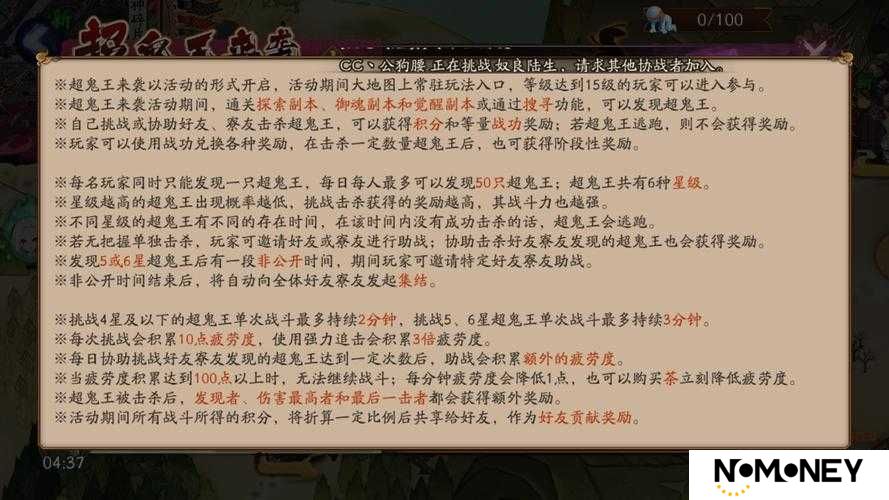 0/100
超鬼王来袭
CC丶公狗腰 正在挑战 奴良陆生，请求其他协战者加入。
※超鬼王来袭以活动的形式开启，活动期间大地图上常驻玩法入口，等级达到15级的玩家可以进入参与。
※超鬼王来袭活动期间，通关探索副本、御魂副本和觉醒副本或通过搜寻功能，可以发现超鬼王。
※自己挑战或协助好友、寮友击杀超鬼王，可以获得积分和等量战功奖励；若超鬼王逃跑，则不会获得奖励。
※玩家可以使用战功兑换各种奖励，在击杀一定数量超鬼王后，也可获得阶段性奖励。
※每名玩家同时只能发现一只超鬼王，每日每人最多可以发现50只超鬼王；超鬼王共有6种星级。
※星级越高的超鬼王出现概率越低，挑战击杀获得的奖励越高，其战斗力也越强。
※不同星级的超鬼王有不同的存在时间，在该时间内没有成功击杀的话，超鬼王会逃跑。
※若无把握单独击杀，玩家可邀请好友或寮友进行助战；协助击杀好友寮友发现的超鬼王也会获得奖励。
※发现5或6星超鬼王后有一段非公开时间，期间玩家可邀请特定好友寮友助战。
※非公开时间结束后，将自动向全体好友寮友发起集结。
※挑战4星及以下的超鬼王单次战斗最多持续2分钟，挑战5、6星超鬼王单次战斗最多持续3分钟。
※每次挑战会积累10点疲劳度，使用强力追击会积累3倍疲劳度。
※每日协助挑战好友寮友发现的超鬼王达到一定次数后，助战会积累额外的疲劳度。
※当疲劳度积累达到100点以上时，无法继续战斗；每分钟疲劳度会降低1点，也可以购买茶立刻降低疲劳度。
※超鬼王被击杀后，发现者、伤害最高者和最后一击者都会获得额外奖励。
※活动期间所有战斗所得的积分，将折算一定比例后共享给好友，作为好友贡献奖励。
04:37
NOMONEY